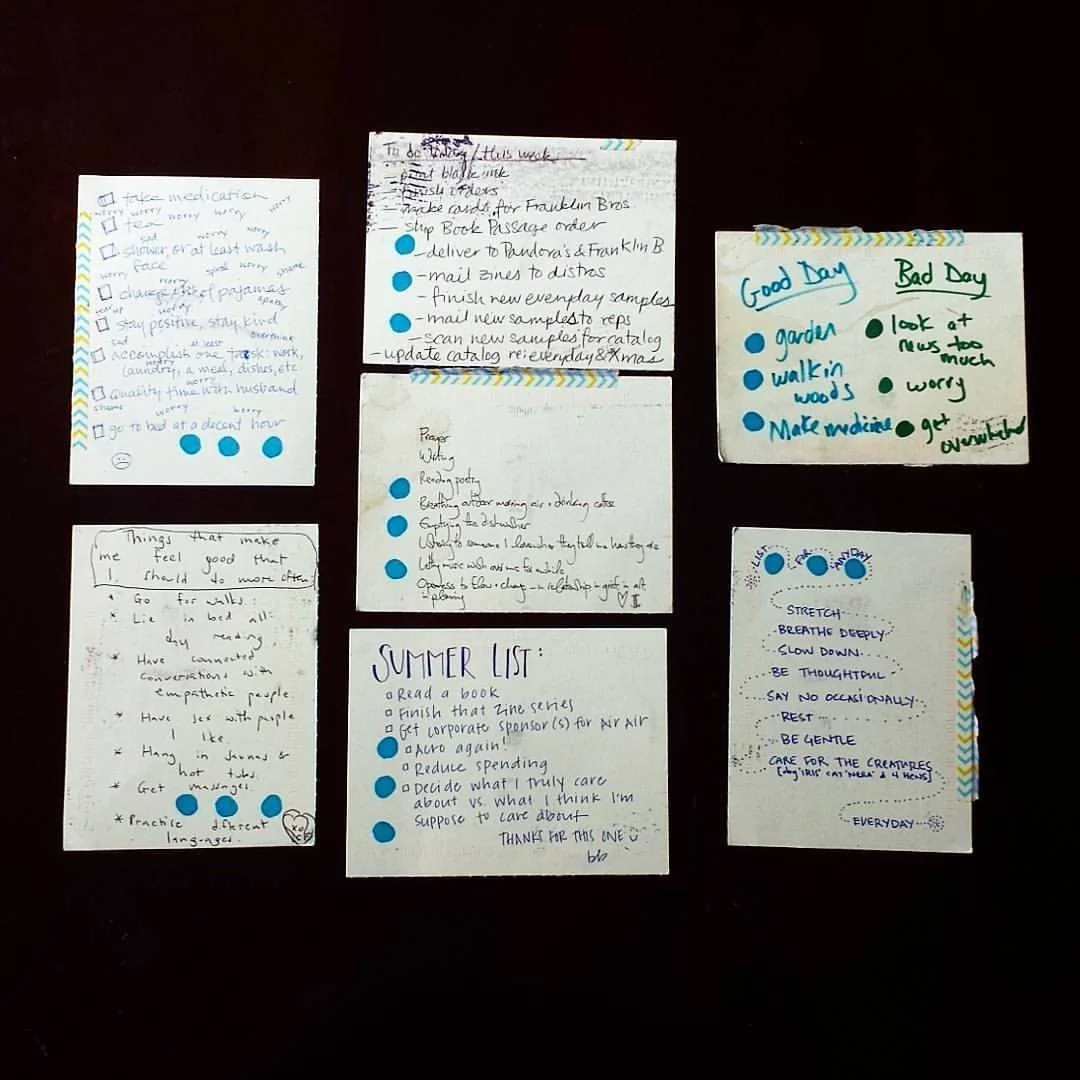 take medication
worry worry worry worry worry
tea
sad worry worry
shower, or at least wash
face
worry spiral worry shame
worry
change out of pajamas
worry
stay positive, stay kind
sad at least overthink
accomplish one task: work,
laundry, a meal, dishes, etc
worry
quality time with husband
shame worry worry
go to bed at a decent hour
Things that make
me feel good that
I should do more often:
* Go for walks.
* Lie in bed all
day reading
* Have connected
conversations with
empathetic people.
* Have sex with people
I like.
* Hang in saunas &
hot tubs.
* Get massages.
* Practise different
languages.
To do today / this week
- print black ink
- finish orders
- make cards for Franklin Bros
- ship Book Passage order
- deliver to Pandora's & Franklin B
- mail zines to distros
- finish new everyday samples
- mail new samples to reps
- scan new samples for catalog
- update catalog re: everyday & Xmas
Prayer
Writing
Reading poetry
Breathing outdoor morning air + drinking coffee
Emptying the dishwasher
Listening to someone I love when they tell me how they are
Letting music wash over me for a while
Openness to flow + change - in relationship in grief in art
in planning
SUMMER LIST:
Read a book
Finish that zine series
Get corporate sponsor(s) for Air Air
Acro again!
Reduce spending
Decide what I truly care
about vs. what I think I'm
suppose to care about
THANKS FOR THIS ONE
bb
Good Day
garden
walk in
woods
Make medicine
Bad Day
look at
news too
much
worry
get
overwhelmed
LIST FOR ANYDAY
STRETCH
BREATHE DEEPLY
SLOW DOWN
BE THOUGHTFUL
SAY NO OCCASIONALLY
REST
BE GENTLE
CARE FOR THE CREATURES
[dog 'IRIS' cat 'NEKA' & 4 HENS]
EVERYDAY